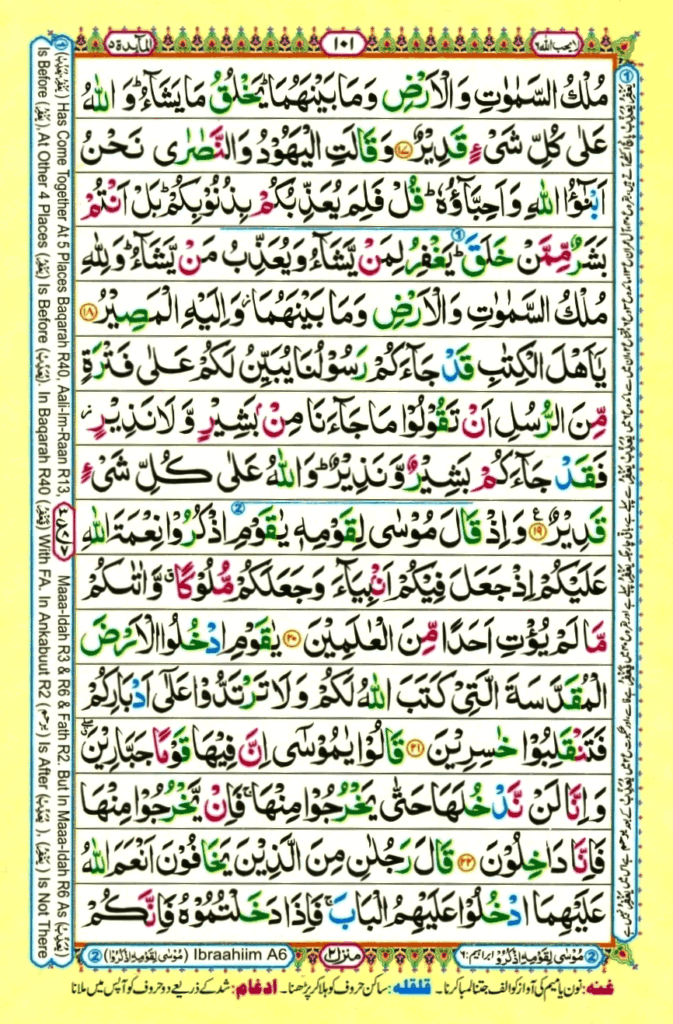 لايحب الله ٦
١٠١
المآئدة ٥
مُلْكُ السَّمٰوٰتِ وَالْاَرْضِ وَمَا بَيْنَهُمَا ؕ يَخْلُقُ مَا يَشَآءُ ؕ وَ اللّٰهُ
عَلٰى كُلِّ شَىْءٍ قَدِيْرٌ ﴿۱۷﴾ وَقَالَتِ الْيَهُوْدُ وَالنَّصٰرٰى نَحْنُ
اَبْنٰٓؤُا اللّٰهِ وَاَحِبَّآؤُهٗ ؕ قُلْ فَلِمَ يُعَذِّبُكُمْ بِذُنُوْبِكُمْ ؕ بَلْ اَنْتُمْ
بَشَرٌ مِّمَّنْ خَلَقَ ؕ يَغْفِرُ لِمَنْ يَّشَآءُ وَيُعَذِّبُ مَنْ يَّشَآءُ ؕ وَلِلّٰهِ
مُلْكُ السَّمٰوٰتِ وَالْاَرْضِ وَمَا بَيْنَهُمَا ؗ وَاِلَيْهِ الْمَصِيْرُ ﴿۱۸﴾
يٰۤاَهْلَ الْكِتٰبِ قَدْ جَآءَكُمْ رَسُوْلُنَا يُبَيِّنُ لَكُمْ عَلٰى فَتْرَةٍ
مِّنَ الرُّسُلِ اَنْ تَقُوْلُوْا مَا جَآءَنَا مِنْۢ بَشِيْرٍ وَّلَا نَذِيْرٍ ؗ
فَقَدْ جَآءَكُمْ بَشِيْرٌ وَّنَذِيْرٌ ؕ وَاللّٰهُ عَلٰى كُلِّ شَىْءٍ
قَدِيْرٌ ﴿۱۹﴾ وَاِذْ قَالَ مُوْسٰى لِقَوْمِهٖ يٰقَوْمِ اذْكُرُوْا نِعْمَةَ اللّٰهِ
عَلَيْكُمْ اِذْ جَعَلَ فِيْكُمْ اَنْۢبِيَآءَ وَجَعَلَكُمْ مُّلُوْكًا ۖۗ وَّاٰتٰىكُمْ
مَّا لَمْ يُؤْتِ اَحَدًا مِّنَ الْعٰلَمِيْنَ ﴿۲۰﴾ يٰقَوْمِ ادْخُلُوا الْاَرْضَ
الْمُقَدَّسَةَ الَّتِىْ كَتَبَ اللّٰهُ لَكُمْ وَلَا تَرْتَدُّوْا عَلٰٓى اَدْبَارِكُمْ
فَتَنْقَلِبُوْا خٰسِرِيْنَ ﴿۲۱﴾ قَالُوْا يٰمُوْسٰٓى اِنَّ فِيْهَا قَوْمًا جَبَّارِيْنَ ۖۗ
وَاِنَّا لَنْ نَّدْخُلَهَا حَتّٰى يَخْرُجُوْا مِنْهَا ۚ فَاِنْ يَّخْرُجُوْا مِنْهَا
فَاِنَّا دَاخِلُوْنَ ﴿۲۲﴾ قَالَ رَجُلٰنِ مِنَ الَّذِيْنَ يَخَافُوْنَ اَنْعَمَ اللّٰهُ
عَلَيْهِمَا ادْخُلُوْا عَلَيْهِمُ الْبَابَ ۚ فَاِذَا دَخَلْتُمُوْهُ فَاِنَّكُمْ
② مُوْسٰى لِقَوْمِهِ اذْكُرُوْا ابراہیم: ٦
منزل ٢
② (مُوْسٰى لِقَوْمِهِ اذْكُرُوْا) Ibraahiim A6
غنہ: نون یا میم کی آواز کو الف جتنا لمبا کرنا۔ قلقلہ: ساکن حروف کو ہلا کر پڑھنا۔ ادغام: شد کے ذریعے دو حروف کو آپس میں ملانا
① (يَغْفِرُ، يُعَذِّبُ) Has Come Together At 5 Places Baqarah R40, Aali-Im-Raan R13, Maaa-Idah R3 & R6 & Fath R2. But In Maaa-Idah R6 As (يُعَذِّبُ)
Is Before (يَغْفِرُ), At Other 4 Places (يَغْفِرُ) Is Before (يُعَذِّبُ). In Baqarah R40 (فَيَغْفِرُ) With FA. In Ankabuut R2 (يَرْحَمُ) Is After (يُعَذِّبُ), (يَغْفِرُ) Is Not There